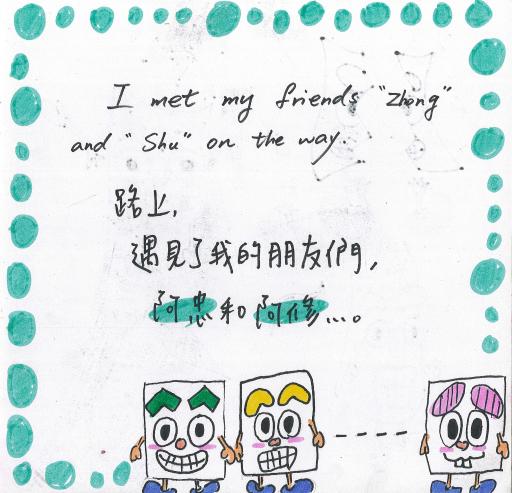 I met my friends "Zhong"
and "Shu" on the way.
路上,
遇見了我的朋友們,
阿忠和阿修...。